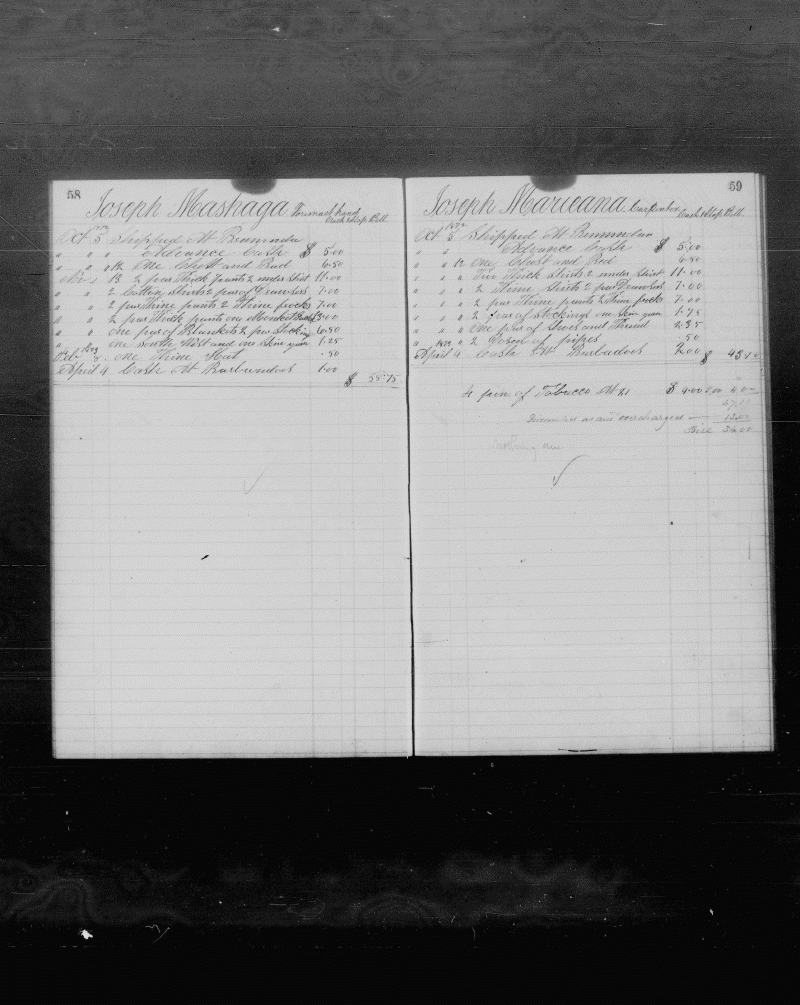 58
Joseph Mashaga Foremast hand
Cash & Slop Bill
Oct 5 Shipped At Bermuda
" " " Advance Cash $ 5.00
" " " 12 One Chest and Bed 6.50
Nov 1 13 2 pear Thick pants 2 under Shirt 11.00
" " 2 Cotton Shirts 2 pear of Drawers 7.00
" " 2 pear Thine pants 2 Thine frocks 7.00
" " 2 pear Thick pants one Monket
" " one pear of Blankets 2 pear Stockings 6.50
" " one South West and one Skin yarn 1.25
Feb one Thine Hat .50
April 4 Cash At Barbados 1.00
$ 55.75
59
Joseph Marieana Carpenter Cash & Slop Bill
Oct 5 Shipped At Bermuda
" " Advance Cash $ 5.00
" " 12 One Chest and Bed 6.50
" " " Two Thick Shirts 2 under Shirt 11.00
" " " 2 Thine Shirts 2 pear Drawers 7.00
" " " 2 pear Thine pants 2 Thine frocks 7.00
" " " 2 pear of Stockings one Skin yarn 1.75
" " " One pear of Shoes and Thread 2.35
" " 2 Dozen of pipes .50
April 4 Cash At Barbados 2.00
$ 43.10
4 of Tobacco At $1 $ 4.00
overcharged
Bill
nothing due